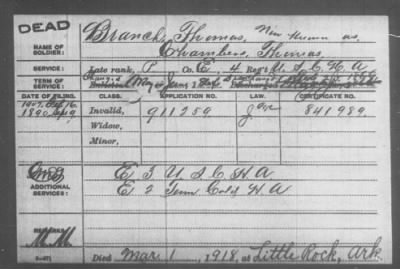 DEAD
Branch, Thomas, Now known as
NAME OF SOLDIER: Chambers, Thomas
SERVICE: Late rank, P Co. E, 4 Reg't U S C H A
TERM OF SERVICE:
DATE OF FILING. CLASS. APPLICATION NO. LAW. CERTIFICATE NO.
1890 Invalid, 911259 841989
Widow,
Minor,
ADDITIONAL SERVICES: E 3 U S C H A
E 2 Tenn Cold H A
REMARKS:
M.M.
Died Mar 1, 1918, at Little Rock, Ark.